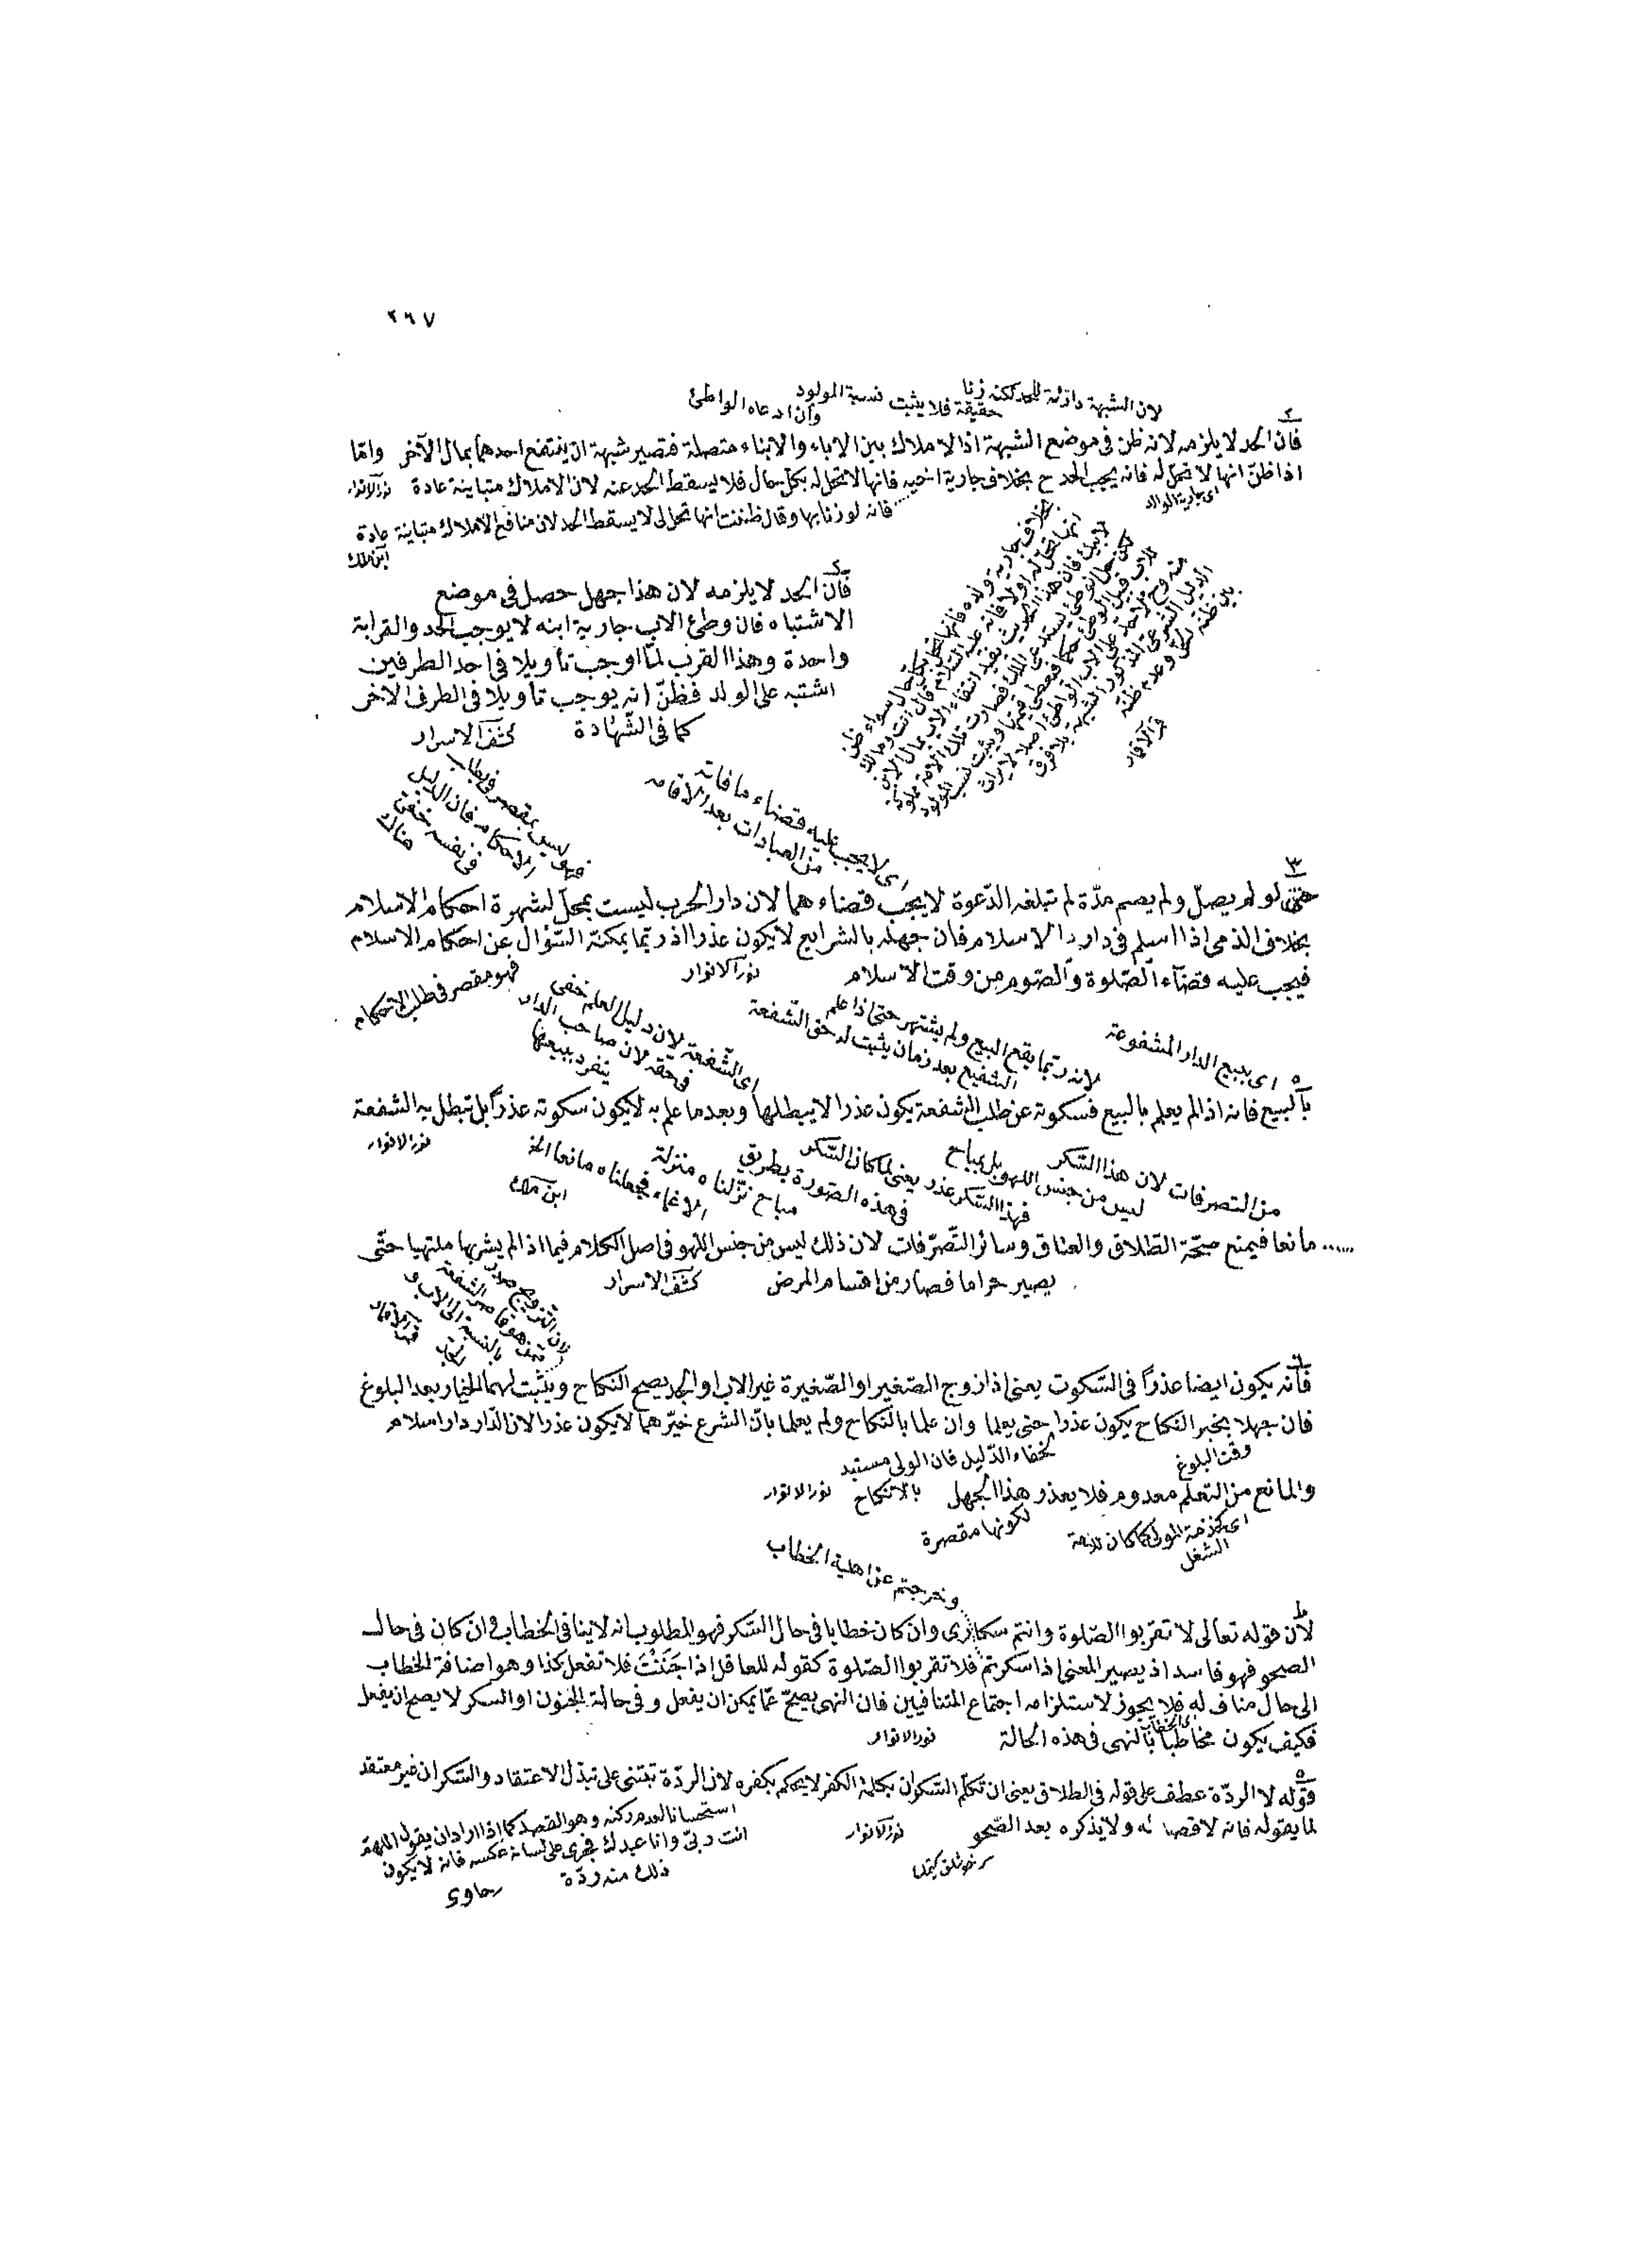 ٢٦٧
لان الشبهة دارئة للحد لكنه زنا
حقيقة فلا يثبت نسبة المولود
وان ادعاه الواطئ
٢
فان الحد لا يلزمه لانه ظن فى موضع الشبهة اذ الاملاك بين الاباء والابناء متصلة فتصير شبهة ان ينتفع احدهما بمال الآخر وامّا
اذا ظنّ انها لا تحلّ له فانه يجب الحد ح بخلاف جارية اخيه فانها لا تحلّ له بكل حال فلا يسقط الحد عنه لان الاملاك متباينة عادة نور الانوار
اى جارية الوالد
فانه لو زنا بها وقال ظننت انها تحل لى لا يسقط الحد لان منافع الاملاك متباينة عادة
ابن ملك
فان الحد لا يلزمه لان هذا جهل حصل فى موضع
الاشتباه فان وطئ الاب جارية ابنه لا يوجب الحد والقرابة
واحدة وهذا القرب لمّا اوجب تأويلا فى احد الطرفين
اشتبه على الولد فظنّ انه يوجب تأويلا فى الطرف الاخر
كما فى الشّهادة كشف الاسرار
بخلاف جارية ولده فانها تحل بكل حال سواء ظن
انها تحل له او لا فانه عليه السلام قال انت ومالك
لابيك فان هذا الحديث يفيد انتفاء الاب بمال الابن
منه وح فلا حد على الاب الواطئ اصلا لايراث
الدليل الشرعى المذكور الشبهة بلا فرق
بين ظنه لحل وعدم ظنه
قمر الاقمار
اى لا يجب عليه قضاء ما فاته
من العبادات بعد الاقامه
فهو ليس بمقصر فى طلب
الاحكام فان الدليل
فى نفسه خفى
هناك
٣
حتى لو لم يصلّ ولم يصم مدّة لم تبلغه الدّعوة لا يجب قضاءهما لان دار الحرب ليست بمحل لشهرة احكام الاسلام
بخلاف الذمى اذا اسلم فى دار الاسلام فان جهله بالشرايع لا يكون عذرا اذ ربّما يمكنه السّؤال عن احكام الاسلام
فيجب عليه قضآء الصّلوة والصّوم من وقت الاسلام نور الانوار
فهو مقصر فى طلب الاحكام
اى ببيع الدار المشفوعة
لانه ربّما يقع البيع ولم يشتهر حتى اذا علم
الشفيع بعد زمان يثبت له حق الشّفعة
اى الشّفعة لان دليل العلم خفى
فى حقّه لان صاحب الدار
ينفرد ببيعها
٥
بالبيع فانه اذا لم يعلم بالبيع فسكوته عن طلب الشفعة يكون عذرا لا يبطلها وبعد ما علم به لا يكون سكوته عذراً بل تبطل به الشفعة
نور الانوار
من التصرفات لان هذا السّكر
ليس من جنس اللهو بل مباح
فهذا السّكر عذر يعنى لما كان السّكر
فى هذه الصّورة بطريق
مباح نزّلناه منزلة
الاغماء فجعلناه مانعا الخ
ابن ملك
...... مانعا فيمنع صحّة الطّلاق والعتاق وسائر التّصرّفات لان ذلك ليس من جنس اللهو فى اصل الكلام فيما اذا لم يشربها ملتهيا حتّى
يصير حراما فصار من اقسام المرض كشف الاسرار
قمر الاقمار
فانه يكون ايضا عذراً فى السّكوت يعنى اذا زوج الصّغير او الصّغيرة غير الاب او الجد يصح النّكاح ويثبت لهما الخيار بعد البلوغ
فان جهلا بخبر النكاح يكون عذرا حتى يعلما وان علما بالنّكاح ولم يعلما بانّ الشرع خيّرهما لا يكون عذرا لان الدّار دار اسلام
وقت البلوغ
لخفاء الدّليل فان الولى مستبد
بالانكاح نور الانوار
والمانع من التعلم معدوم فلا يعذر هذا الجهل
اى كخدمة المولى كما كان للامة
الشغل
لكونها مقصرة
وخرجتم عن اهلية الخطاب
لان قوله تعالى لا تقربوا الصّلوة وانتم سكارى وان كان خطابا فى حال السّكر فهو المطلوب انه لا ينافى الخطاب وان كان فى حال
الصحو فهو فاسد اذ يصير المعنى اذا سكرتم فلا تقربوا الصّلوة كقوله للعاقل اذا جَنَنْتَ فلا تفعل كذا وهو اضافة الخطاب
الى حال مناف له فلا يجوز لاستلزامه اجتماع المتنافيين فان النهى يصحّ عمّا يمكن ان يفعل وفى حالة الجنون او السكر لا يصح ان يفعل
اى الخطاب
فكيف يكون مخاطبا بالنهى فى هذه الحالة نور الانوار
٥
قوله لا الردّة عطف على قوله فى الطلاق يعنى ان تكلّم السّكران بكلمة الكفر لا يحكم بكفره لان الردّة تبتنى على تبدّل الاعتقاد والسّكران غير معتقد
لما يقوله فانه لا قصد له ولا يذكره بعد الصّحو نور الانوار
استحسانا لعدم ركنه وهو القصد كما اذا اراد ان يقول اللهمّ
انت ربّى وانا عبدك فجرى على لسانه عكسه فانه لا يكون
ذلك منه ردّة رهاوى